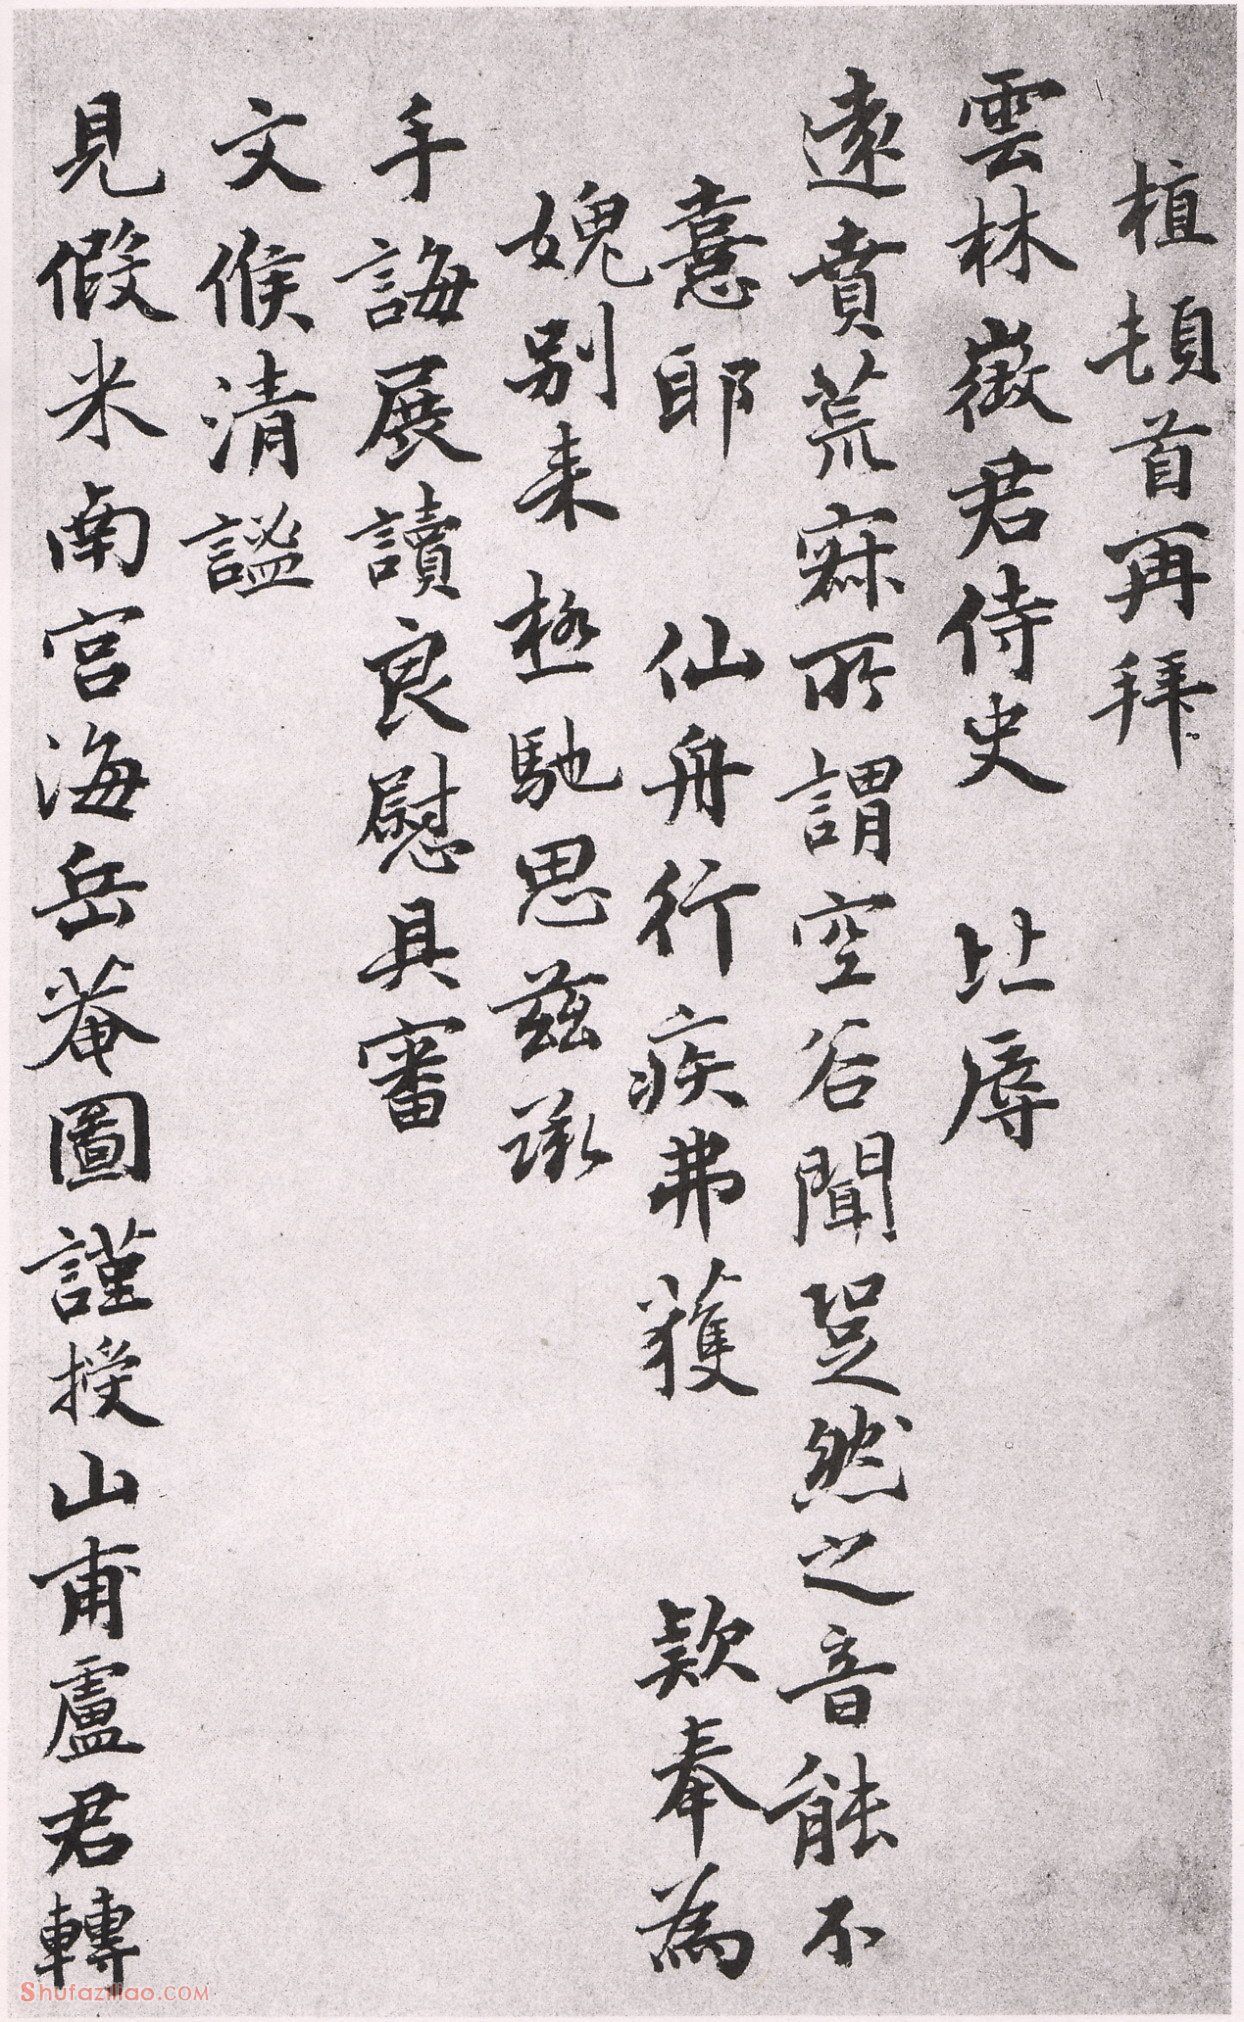 植頓首再拜
雲林徵君侍史 比辱
遠賁荒寂所謂空谷聞跫然之音能不
憙耶 仙舟行疾弗獲 款奉為
媿别来極馳思茲承
手誨展讀良慰具審
文候清謐
見假米南宮海岳菴圖謹授山甫盧君轉
Shufaziliao.COM